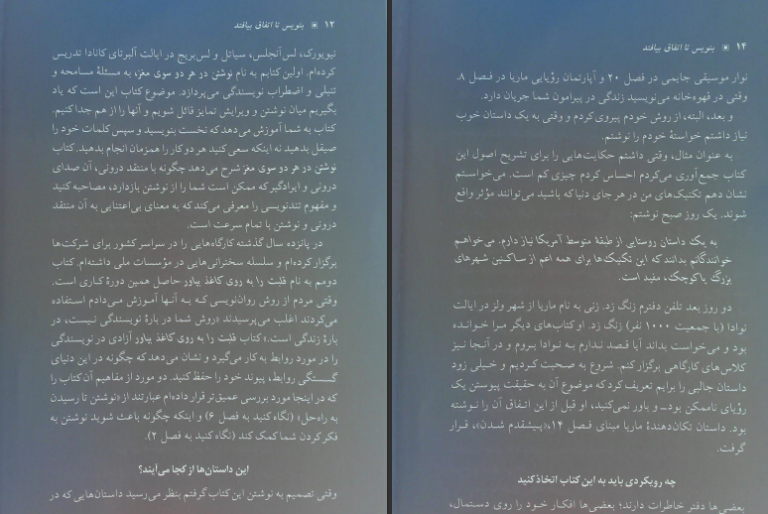 ۱۲ ▣ بنویس تا اتفاق بیافتد
نیویورک، لس‌آنجلس، سیاتل و لس‌بریج در ایالت آلبرتای کانادا تدریس
کرده‌ام. اولین کتابم به نام نوشتن در هر دو سوی مغز، به مسئلهٔ مسامحه و
تنبلی و اضطراب نویسندگی می‌پردازد. موضوع کتاب این است که یاد
بگیریم میان نوشتن و ویرایش تمایز قائل شویم و آنها را از هم جدا کنیم.
کتاب به شما آموزش می‌دهد که نخست بنویسید و سپس کلمات خود را
صیقل بدهید نه اینکه سعی کنید هر دو کار را همزمان انجام بدهید. کتاب
نوشتن در هر دو سوی مغز شرح می‌دهد چگونه با منتقد درونی، آن صدای
درونی و ایرادگیر که ممکن است شما را از نوشتن بازدارد، مصاحبه کنید
و مفهوم تندنویسی را معرفی می‌کند که به معنای بی‌اعتنایی به آن منتقد
درونی و نوشتن با تمام سرعت است.
در پانزده سال گذشته کارگاه‌هایی را در سراسر کشور برای شرکت‌ها
برگزار کرده‌ام و سلسله سخنرانی‌هایی در مؤسسات ملی داشته‌ام. کتاب
دومم به نام قلبت را به روی کاغذ بیاور حاصل همین دورهٔ کاری است.
وقتی مردم از روش روان‌نویسی که به آنها آموزش می‌دادم استفاده
می‌کردند اغلب می‌پرسیدند «روش شما در بارهٔ نویسندگی نیست، در
بارهٔ زندگی است.» کتاب قلبت را به روی کاغذ بیاور آزادی در نویسندگی
را در مورد روابط به کار می‌گیرد و نشان می‌دهد که چگونه در این دنیای
گسستگی روابط، پیوند خود را حفظ کنید. دو مورد از مفاهیم آن کتاب را
که در اینجا مورد بررسی عمیق‌تر قرار داده‌ام عبارتند از «نوشتن تا رسیدن
به راه‌حل» (نگاه کنید به فصل ۶) و اینکه چگونه باعث شوید نوشتن به
فکر کردن شما کمک کند (نگاه کنید به فصل ۲).
این داستان‌ها از کجا می‌آیند؟
وقتی تصمیم به نوشتن این کتاب گرفتم بنظر می‌رسید داستان‌هایی که در
۱۴ ▣ بنویس تا اتفاق بیافتد
نوار موسیقی جایمی در فصل ۲۰ و آپارتمان رؤیایی ماریا در فصل ۸.
وقتی در قهوه‌خانه می‌نویسید زندگی در پیرامون شما جریان دارد.
و بعد، البته، از روش خودم پیروی کردم و وقتی به یک داستان خوب
نیاز داشتم خواستهٔ خودم را نوشتم.
به عنوان مثال، وقتی داشتم حکایت‌هایی را برای تشریح اصول این
کتاب جمع‌آوری می‌کردم احساس کردم چیزی کم است. می‌خواستم
نشان دهم تکنیک‌های من در هر جای دنیا که باشید می‌توانند مؤثر واقع
شوند. یک روز صبح نوشتم:
به یک داستان روستایی از طبقهٔ متوسط آمریکا نیاز دارم. می‌خواهم
خوانندگانم بدانند که این تکنیک‌ها برای همه اعم از ساکنین شهرهای
بزرگ یا کوچک، مفید است.
دو روز بعد تلفن دفترم زنگ زد. زنی به نام ماریا از شهر ولز در ایالت
نوادا (با جمعیت ۱۰۰۰ نفر) زنگ زد. او کتاب‌های دیگر مرا خوانده
بود و می‌خواست بداند آیا قصد ندارم به نوادا بروم و در آنجا نیز
کلاس‌های کارگاهی برگزار کنم. شروع به صحبت کردیم و خیلی زود
داستان جالبی را برایم تعریف کرد که موضوع آن به حقیقت پیوستن یک
رؤیای ناممکن بود_ و باور نمی‌کنید، او قبل از این اتفاق آن را نوشته
بود. داستان تکان‌دهندهٔ ماریا مبنای فصل ۱۴، «پیشقدم شدن»، قرار
گرفت.
چه رویکردی باید به این کتاب اتخاذ کنید
بعضی‌ها دفتر خاطرات دارند؛ بعضی‌ها افکار خود را روی دستمال،